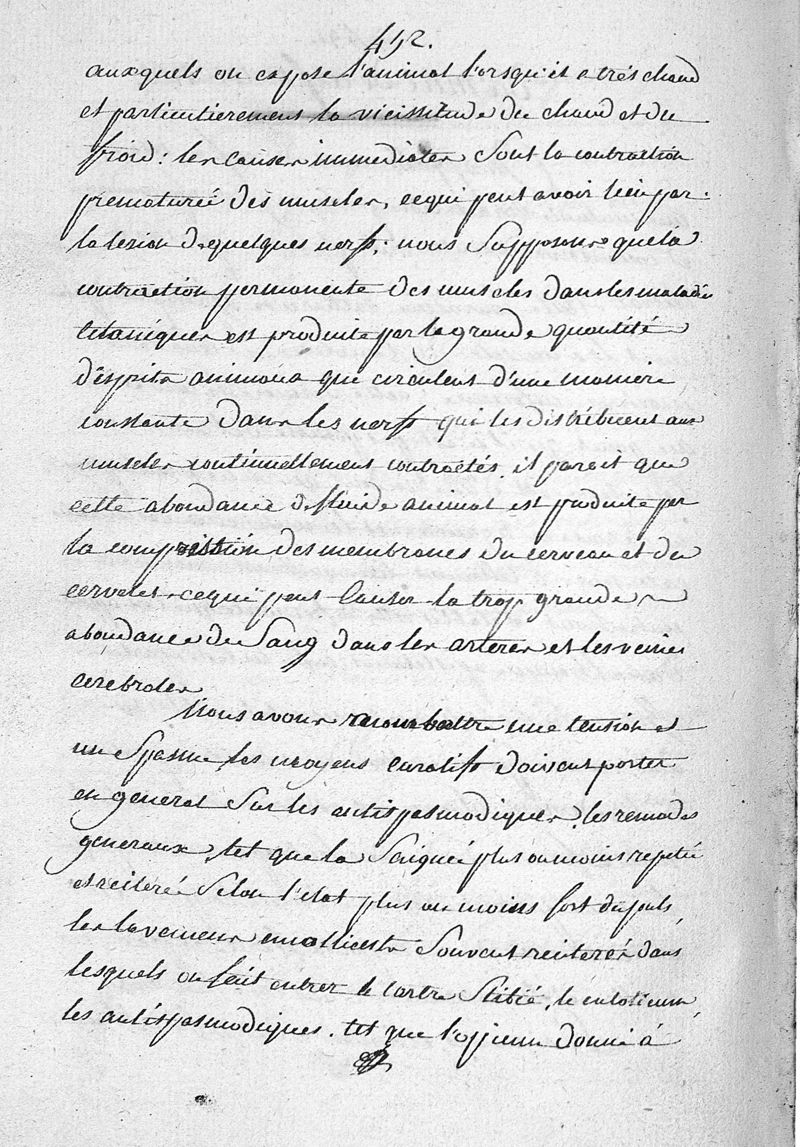 452.
auxquels on expose l'animal lorsqu'il e très chaud
et particulierement la vicissitude du chaud et du
froid: les causes immediates sont la contraction
prematureé des muscles, cequi peut avoir lieu par
la lesion de quelques nerfs; nous supposons que la
contraction permanente des muscles dans les maladies
tetaniques est produite par la grande quantité
d'esprits animaux que circulent d'une maniere
constante dans les nerfs qui les distribuent aux
muscles continuellement contractés. il paroit que
cette abondance de fluide animal est produite par
la compression des membranes du cerveau et du
cervelet. cequi peut causer la trop grande
abondance de sang dans les arteres et les veines
cerebrales
Nous avons a combattre une tension et
un spasme, les moyens curatifs doivent porter
en general sur les antispasmodiques, les remedes
generaux, tel que la saigneé plus ou moins repeteé
et reiteré selon l'etat plus ou moins fort du pouls,
les lavemens emollients souvent reiterés dans
lesquels on fait entrer le tartre stibié,
les antispasmodiques. tel que l'opium donné à